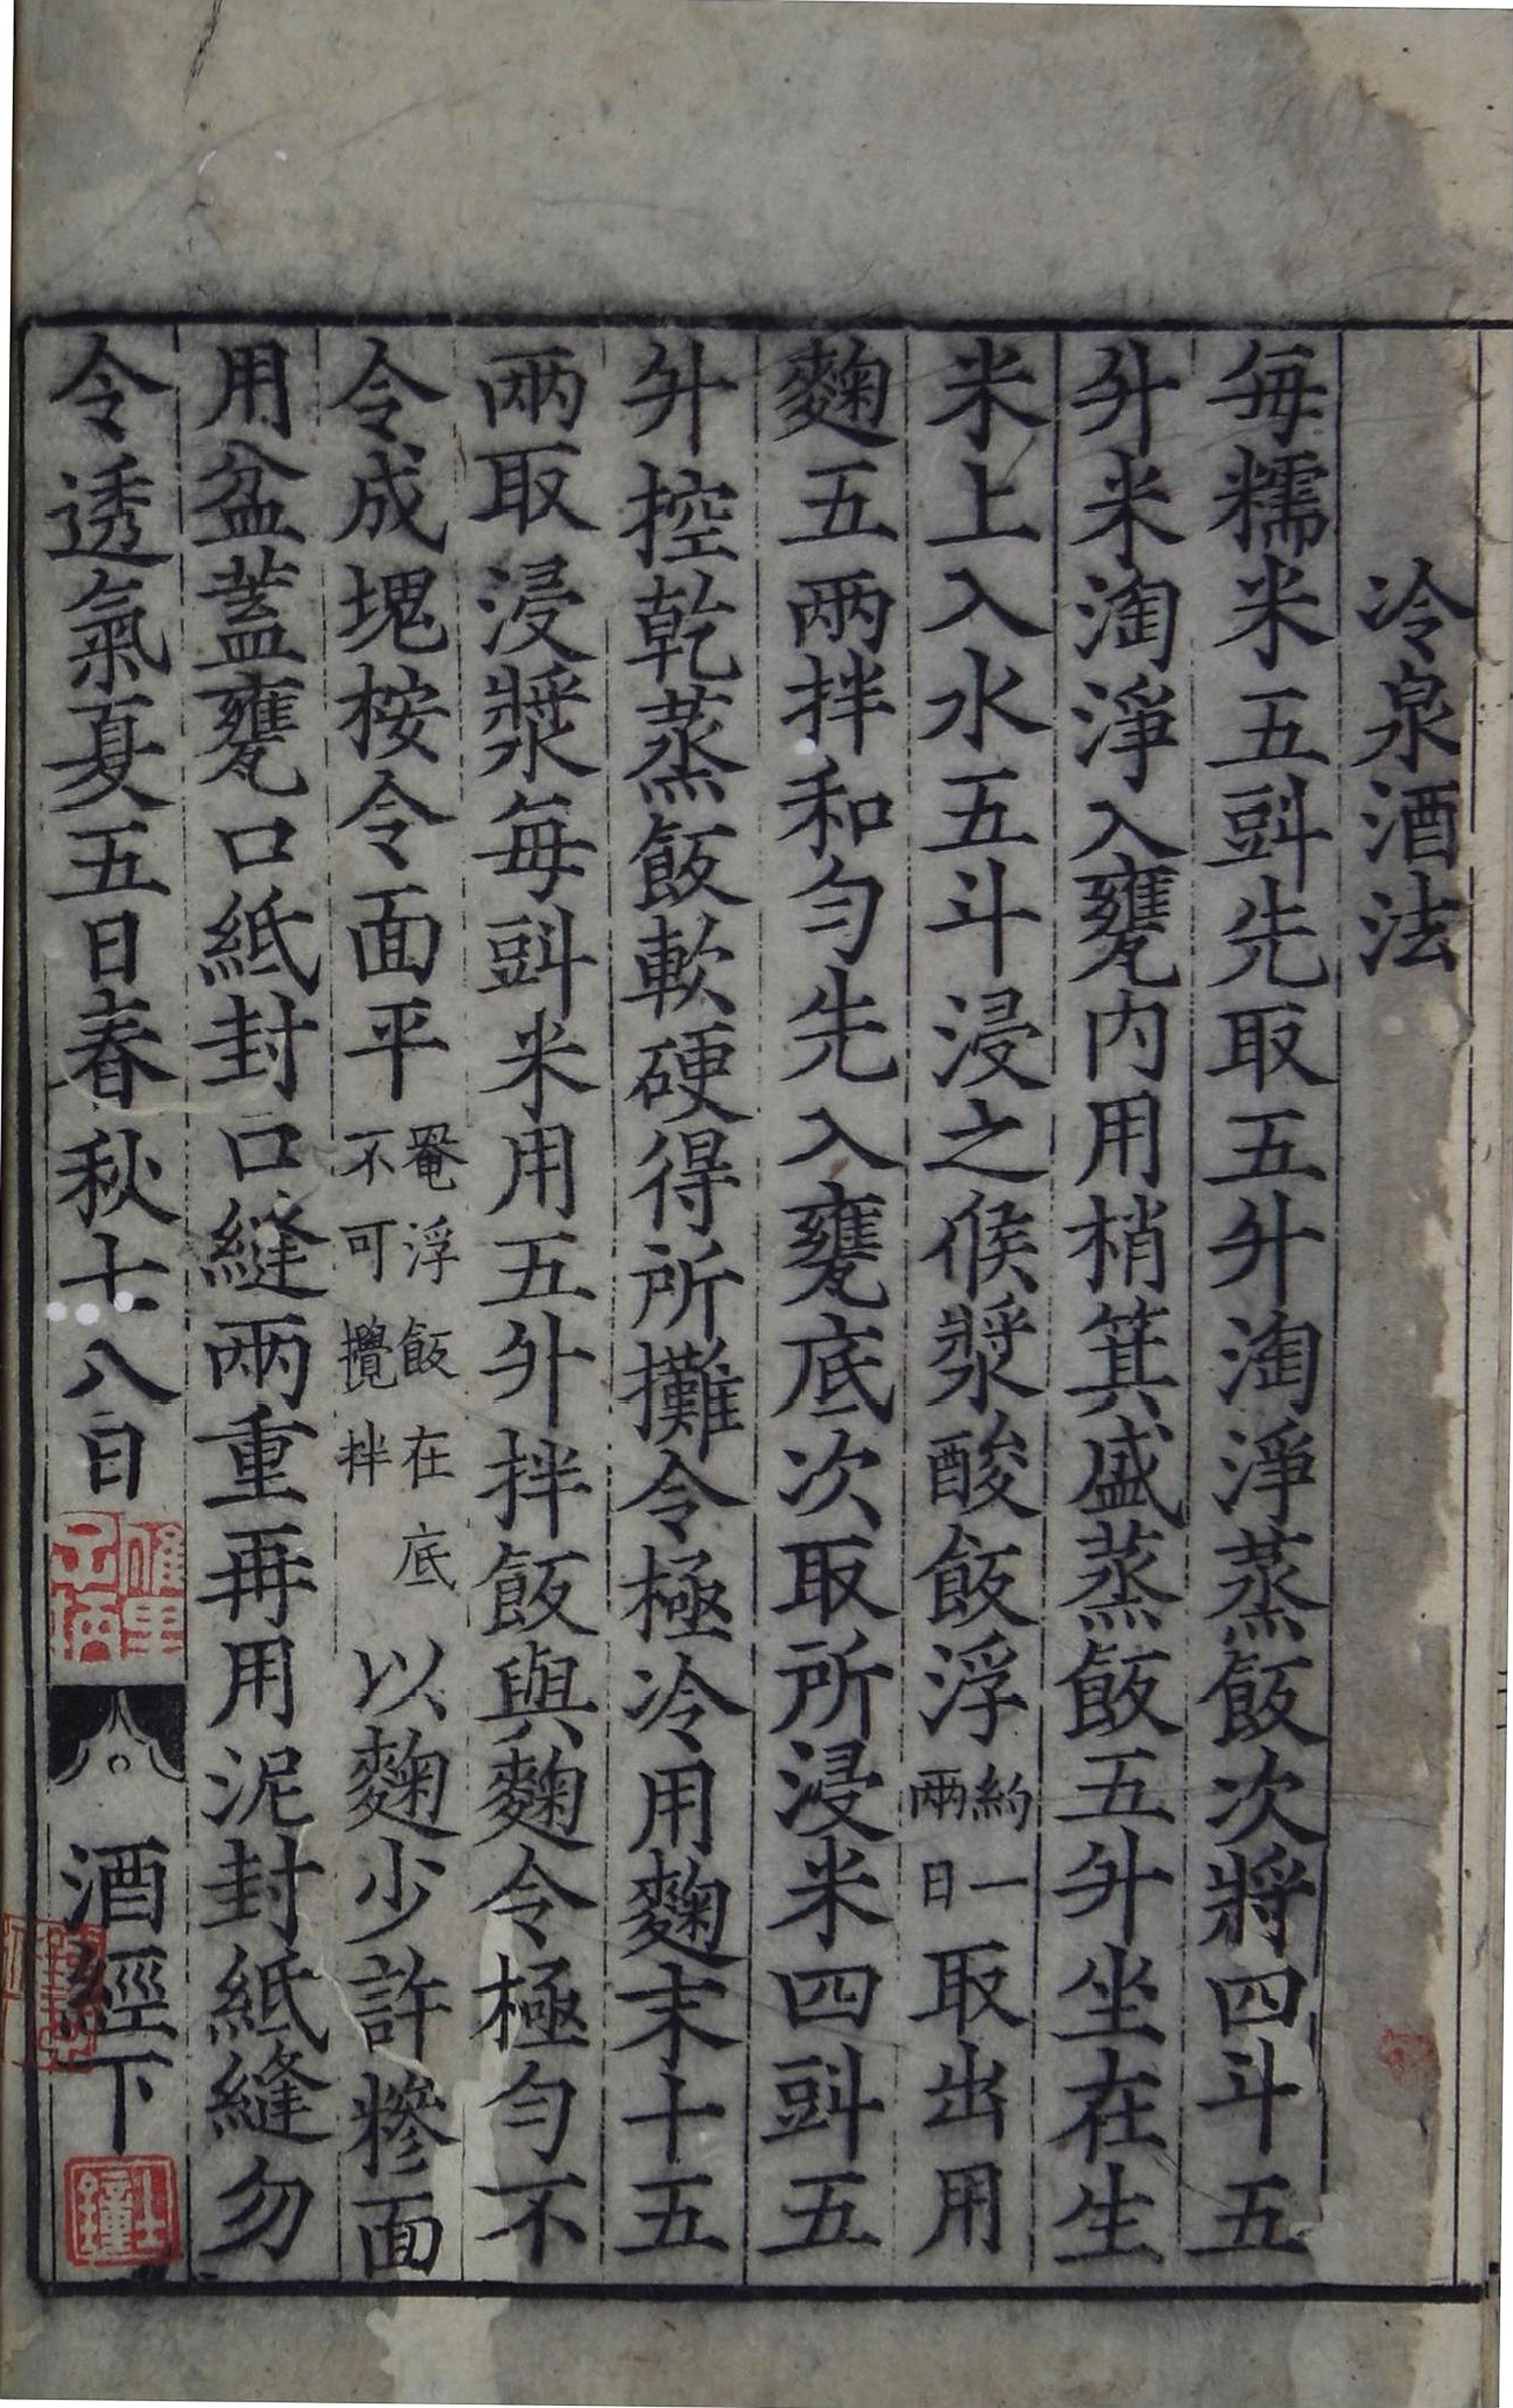 冷泉酒法
每糯米五㪷先取五升淘淨蒸飯次將四斗五
升米淘淨入甕內用梢箕盛蒸飯五升坐在生
米上入水五斗浸之候漿酸飯浮約一兩日取出用
麴五兩拌和勻先入甕底次取所浸米四㪷五
升控乾蒸飯軟硬得所攤令極冷用麴末十五
兩取浸漿每㪷米用五升拌飯與麴令極勻不
令成塊按令面平罨浮飯在底不可攪拌以麴少許糝面
用盆蓋甕口紙封口縫兩重再用泥封紙縫勿
令透氣夏五日春秋七八日
酒經下